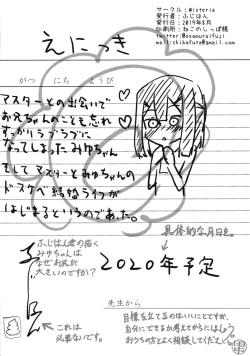 サークル：Wisteria
発行者：ふじはん
発行日：2019年8月
印刷所：ねこのしっぽ様
twitter:@osamurai(fuji
mail:shibafute@gmail.com
えにっき
がつ　にち　ようび
マスターとの出会いで
お兄ちゃんのことも忘れ
すっかりラブラブに
なってしまったみゆちゃん
そしてマスターとみゆちゃんの
ドスケベ結婚ライフが
はじまるというのであった。
具体的な月日を。
2020年予定
ふじはん君の描く
みゆちゃんは
なぜお尻が
大きいのですか？
先生から
目標を立てるのはいいことですが、
自分にできるか考えてからにしましょう。
おうちの方とよく相談してください。
これは
必要ないです。